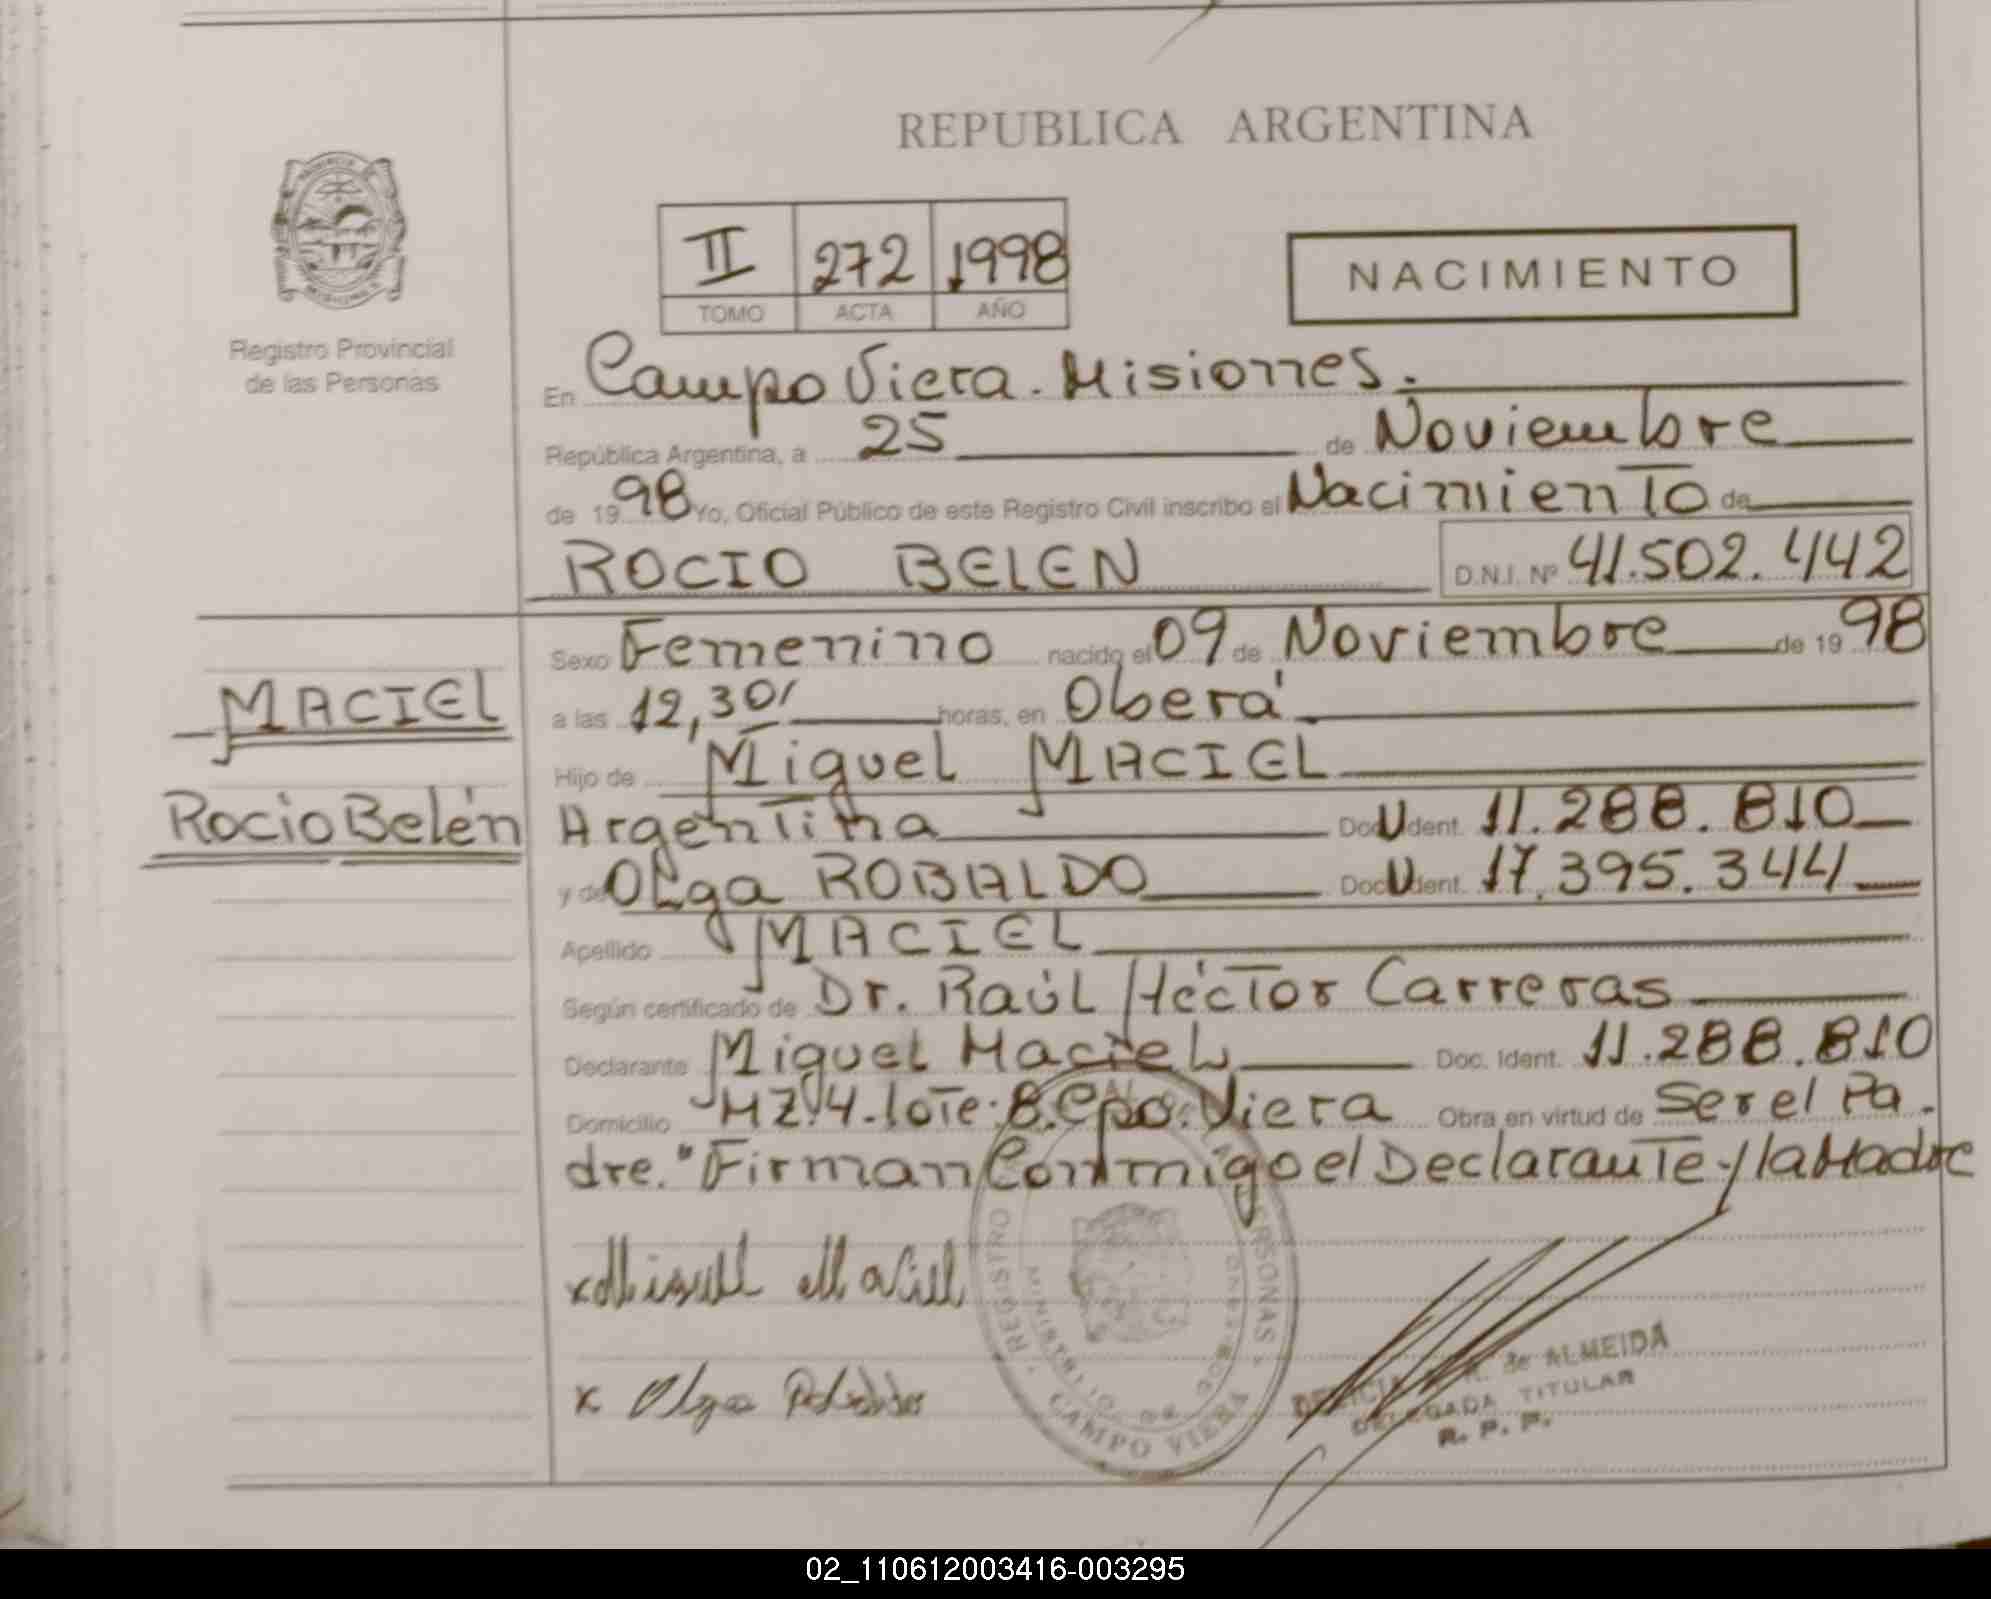 REPUBLICA ARGENTINA
II 272 1998
TOMO ACTA AÑO
NACIMIENTO
Registro Provincial
de las Personas
En Campo Viera. Misiones.
República Argentina, a 25 de Noviembre
de 1998 Yo, Oficial Público de este Registro Civil inscribo el Nacimiento de
ROCIO BELEN D.N.I. Nº 41.502.442
Sexo Femenino nacido el 09 de Noviembre de 1998
MACIEL
a las 12,30' horas, en Oberá.
Hijo de Miguel MACIEL
Rocio Belén
Argentina Doc U Ident. 11.288.810
y de Olga ROBALDO Doc U Ident. 17.395.344
Apellido MACIEL
Según certificado de Dr. Raúl Héctor Carreras
Declarante Miguel Maciel Doc. Ident. 11.288.810
Domicilio MZ.4-lote.8.Cpo.Viera Obra en virtud de Ser el Pa.
dre." Firman Conmigo el Declarante y la Madre
x Miguel Maciel
x Olga Robaldo
REGISTRO PERSONAS
MINISTERIO DE GOBIERNO
CAMPO VIERA
de ALMEIDA
DELEGADA TITULAR
R. P. P.
02_110612003416-003295